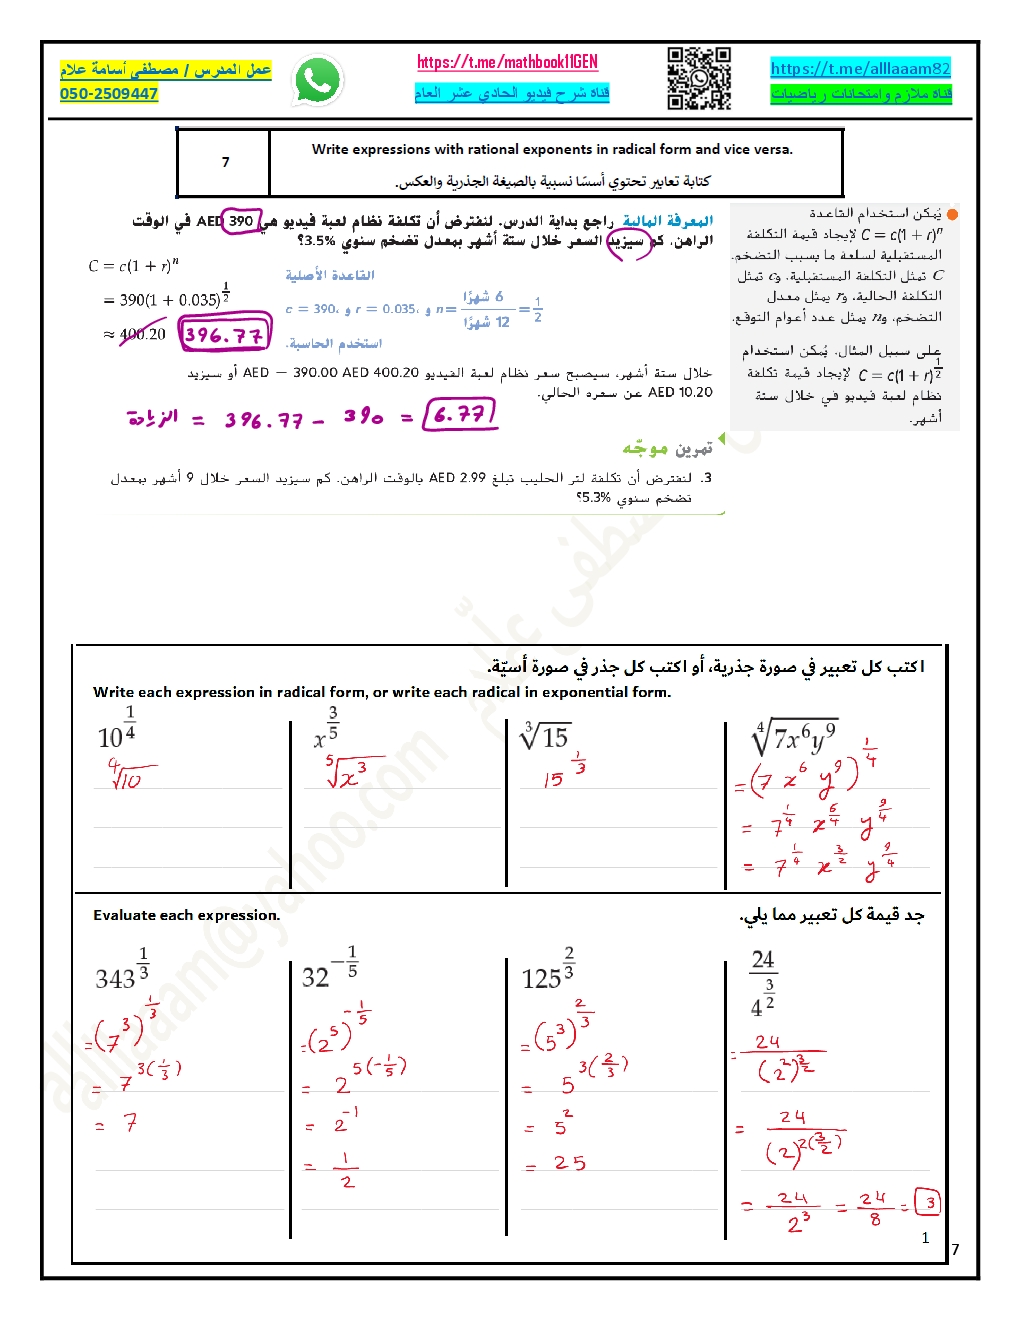 عمل المدرس / مصطفى أسامة علام
050-2509447
https://t.me/mathbook11GEN
قناة شرح فيديو الحادي عشر العام
https://t.me/alllaaam82
قناة ملازم وامتحانات رياضيات
7
Write expressions with rational exponents in radical form and vice versa.
كتابة تعابير تحتوي أسسًا نسبية بالصيغة الجذرية والعكس.
يُمكن استخدام القاعدة
C = c(1 + r)^n لإيجاد قيمة التكلفة
المستقبلية لسلعة ما بسبب التضخم.
C تمثل التكلفة المستقبلية، وc تمثل
التكلفة الحالية، وr يمثل معدل
التضخم، وn يمثل عدد أعوام التوقع.
على سبيل المثال، يُمكن استخدام
C = c(1 + r)^(1/2) لإيجاد قيمة تكلفة
نظام لعبة فيديو في خلال ستة
أشهر.
المعرفة المالية راجع بداية الدرس. لنفترض أن تكلفة نظام لعبة فيديو هي AED 390 في الوقت
الراهن. كم سيزيد السعر خلال ستة أشهر بمعدل تضخم سنوي 3.5%؟
C = c(1 + r)^n
القاعدة الأصلية
= 390(1 + 0.035)^(1/2)
c = 390، و r = 0.035، و n = 6 شهرًا / 12 شهرًا = 1/2
≈ 400.20 396.77
استخدم الحاسبة.
خلال ستة أشهر، سيصبح سعر نظام لعبة الفيديو AED − 390.00 AED 400.20 أو سيزيد
AED 10.20 عن سعره الحالي.
الزيادة = 396.77 − 390 = 6.77
تمرين موجّه
3. لنفترض أن تكلفة لتر الحليب تبلغ AED 2.99 بالوقت الراهن. كم سيزيد السعر خلال 9 أشهر بمعدل
تضخم سنوي 5.3%؟
اكتب كل تعبير في صورة جذرية، أو اكتب كل جذر في صورة أسيّة.
Write each expression in radical form, or write each radical in exponential form.
10^(1/4)
⁴√10
x^(3/5)
⁵√x³
³√15
15^(1/3)
⁴√7x⁶y⁹
= (7 x⁶ y⁹)^(1/4)
= 7^(1/4) x^(6/4) y^(9/4)
= 7^(1/4) x^(3/2) y^(9/4)
Evaluate each expression.
جد قيمة كل تعبير مما يلي.
343^(1/3)
= (7³)^(1/3)
= 7^(3(1/3))
= 7
32^(−1/5)
= (2⁵)^(−1/5)
= 2^(5(−1/5))
= 2⁻¹
= 1/2
125^(2/3)
= (5³)^(2/3)
= 5^(3(2/3))
= 5²
= 25
24 / 4^(3/2)
= 24 / (2²)^(3/2)
= 24 / (2)^(2(3/2))
= 24 / 2³ = 24/8 = 3
1
7
alllaaam@yahoo.com
مصطفى علام